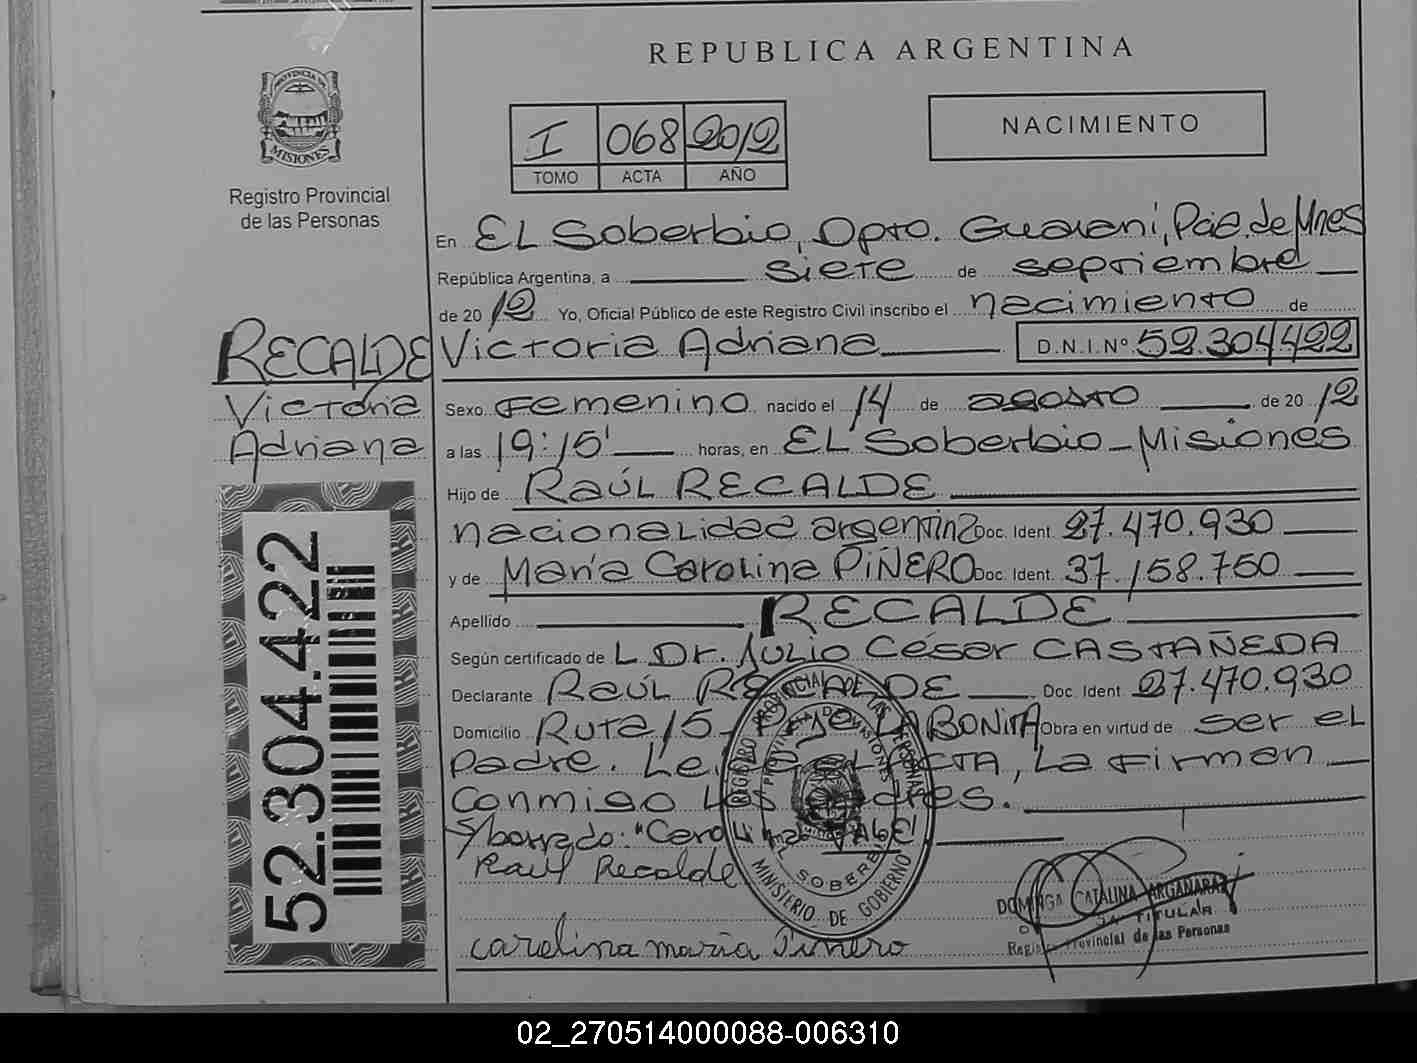 REPUBLICA ARGENTINA
PROVINCIA DE
MISIONES
Registro Provincial
de las Personas
I 068 2012
TOMO ACTA AÑO
NACIMIENTO
En EL Soberbio, Dpto. Guaraní, Pcia. de Mnes
República Argentina, a siete de septiembre
de 2012 Yo, Oficial Público de este Registro Civil inscribo el nacimiento de
Victoria Adriana D.N.I.Nº 52.304422
RECALDE
Victoria
Adriana
52.304.422
Sexo Femenino nacido el 14 de agosto de 2012
a las 19:15' horas, en EL Soberbio - Misiones
Hijo de RAÚL RECALDE
nacionalidad argentina Doc. Ident. 27.470.930
y de María Carolina PIÑERO Doc. Ident. 37.158.750
Apellido RECALDE
Según certificado de L Dr. JULIO César CASTAÑEDA
Declarante RAÚL RECALDE Doc. Ident. 27.470.930
Domicilio RUTA 15 LA BONITA Obra en virtud de ser el
padre. Leída el ACTA, La firman
conmigo los padres.
S/borrado: "Carolina" VALE
Raul Recalde
carolina maria Piñero
REGISTRO PROVINCIAL DE LAS PERSONAS
PROVINCIA DE MISIONES
EL SOBERBIO
MINISTERIO DE GOBIERNO
DOMINGA CATALINA ARGAÑARAZ
TITULAR
Registro Provincial de las Personas
02_270514000088-006310